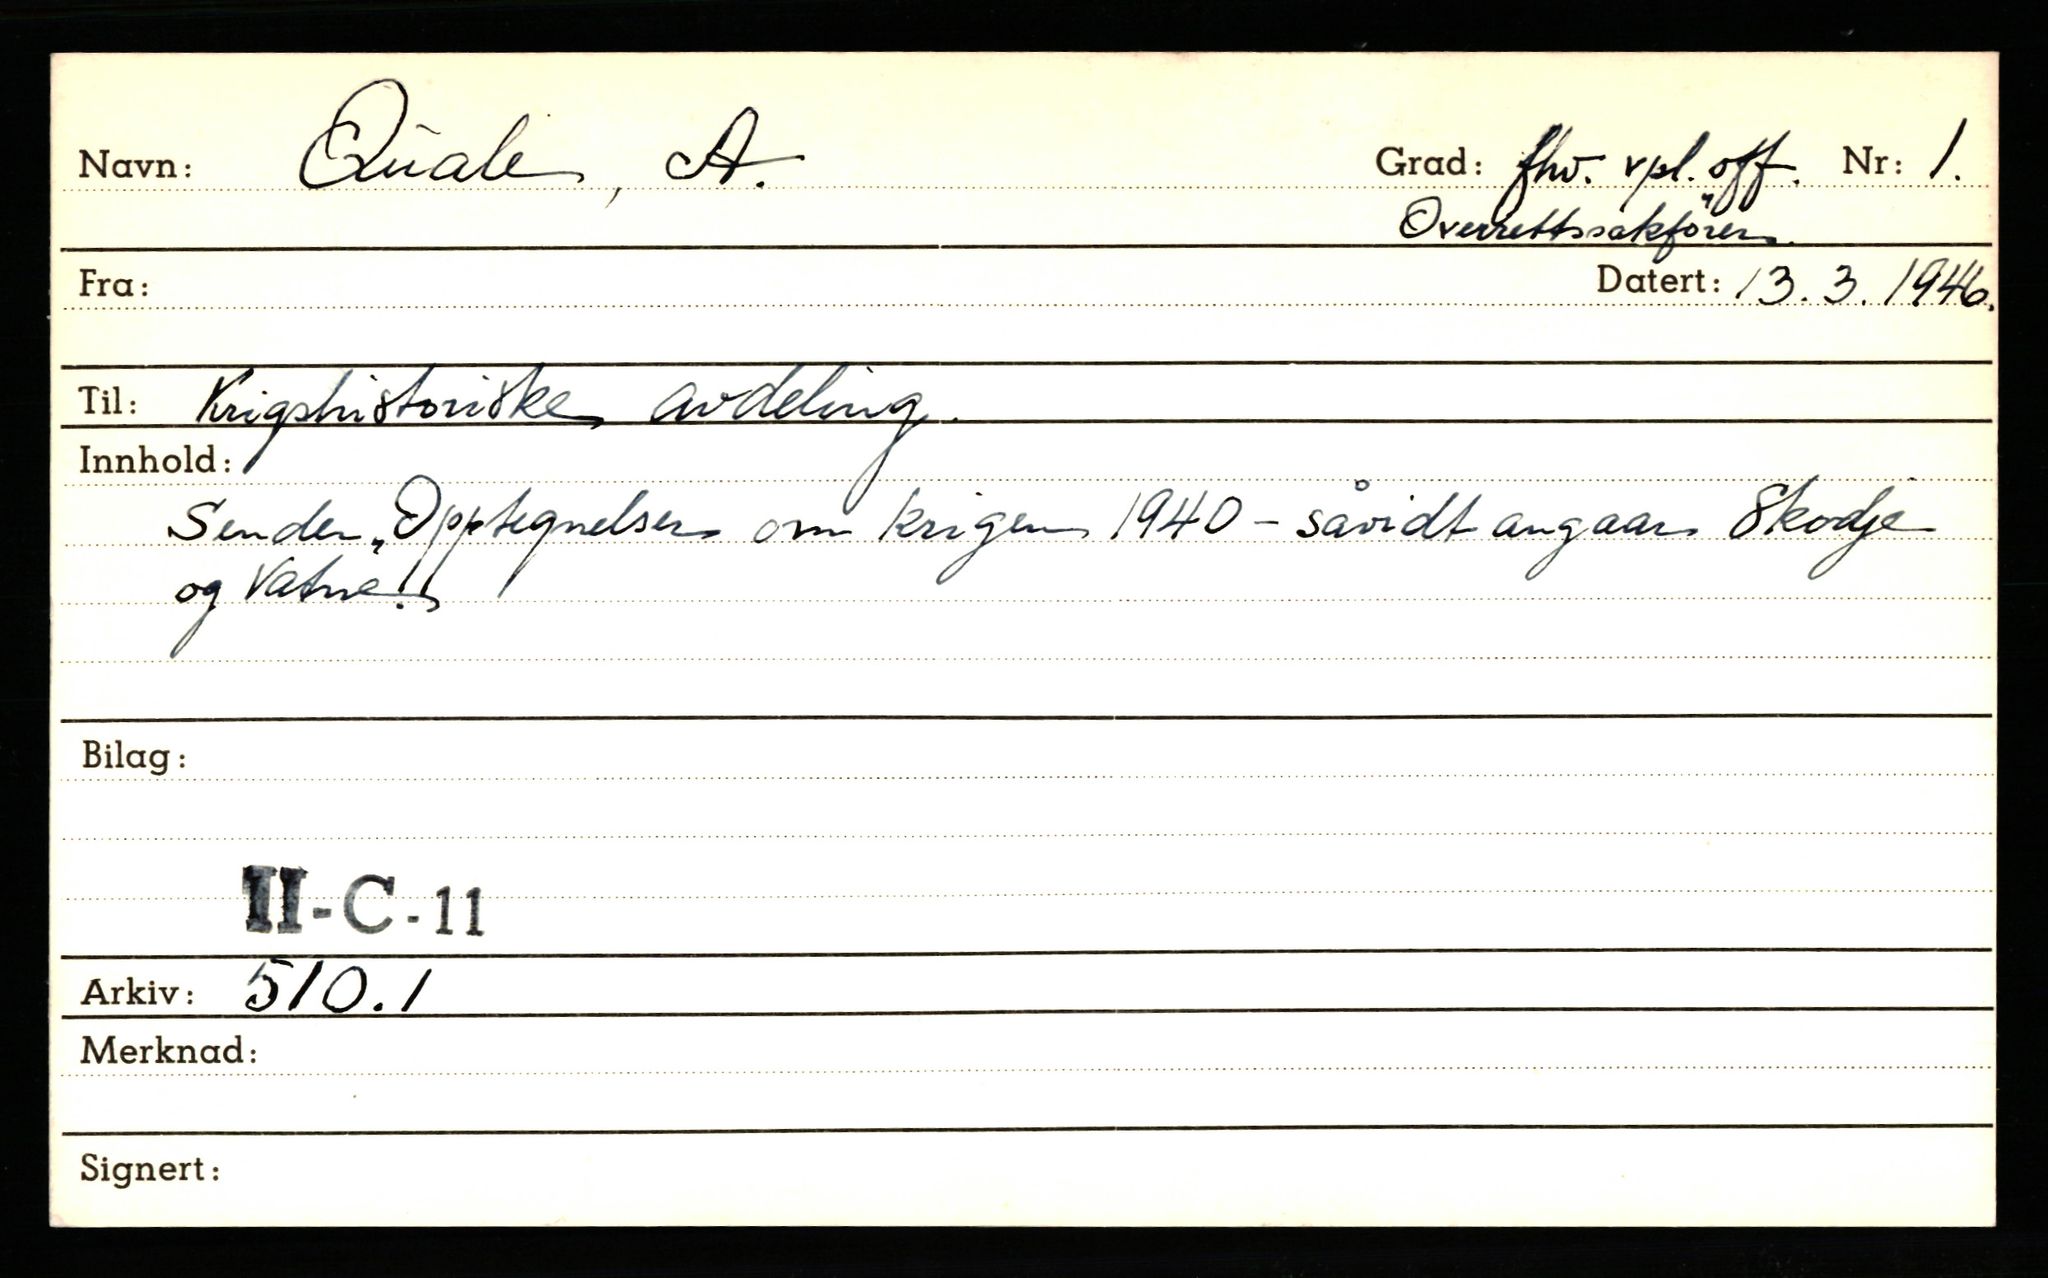 Navn: Quale, A. Grad: fhv. vpl. off. Nr: 1.
Overrettssakförer.
Fra: Datert: 13.3.1946.
Til: Krigshistoriske avdeling.
Innhold:
Sender „Opptegnelser om krigen 1940 - såvidt angaar Skodje
og Vatne."
Bilag:
II-C-11
Arkiv: 510.1
Merknad:
Signert: